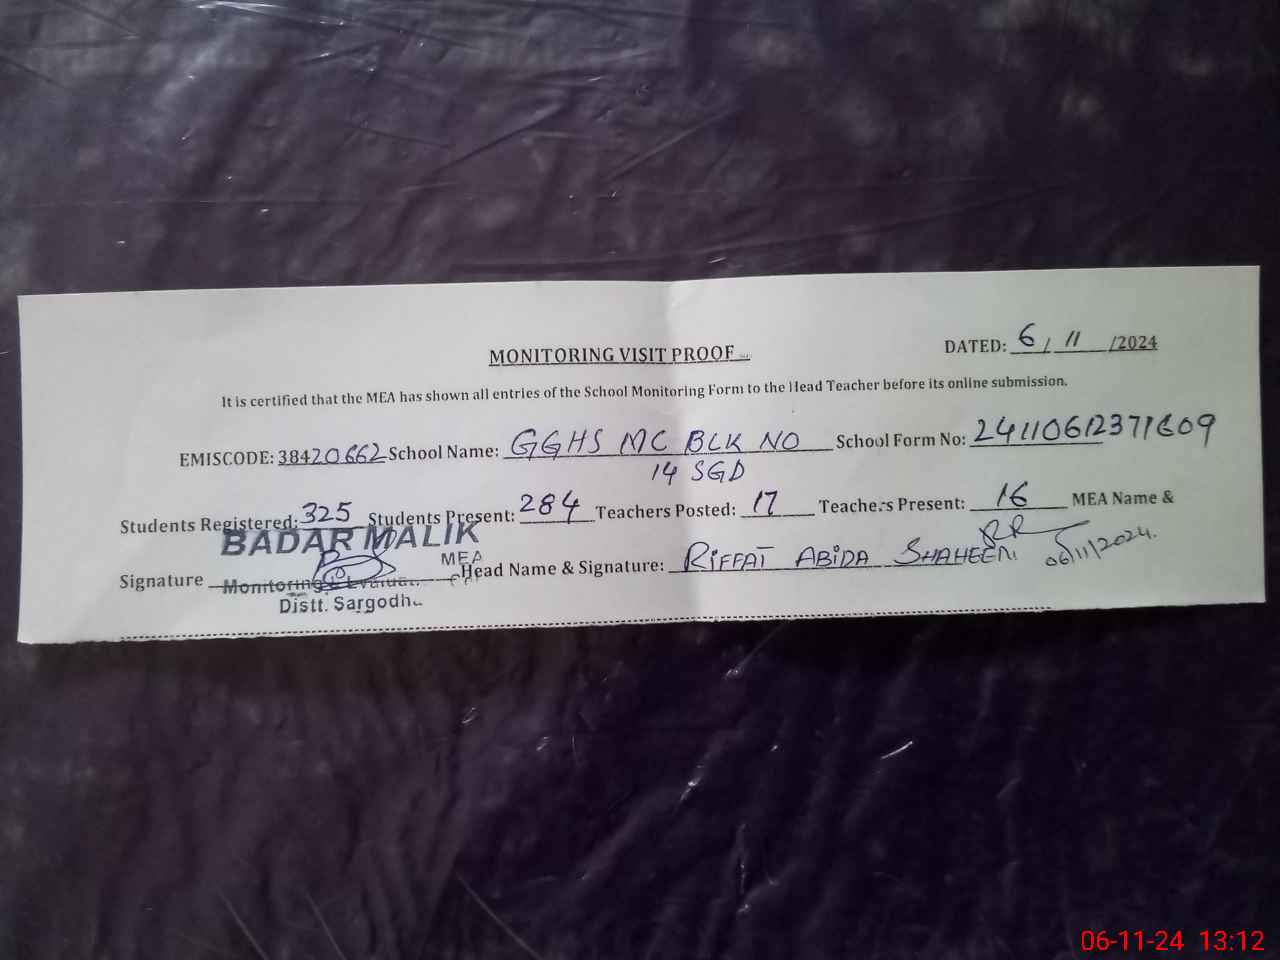 MONITORING VISIT PROOF
DATED: 6 / 11 /2024
It is certified that the MEA has shown all entries of the School Monitoring Form to the Head Teacher before its online submission.
EMISCODE: 38420662 School Name: GGHS MC BLK NO School Form No: 24110612371609
14 SGD
Students Registered: 325 Students Present: 284 Teachers Posted: 17 Teachers Present: 16 MEA Name &
BADAR MALIK
MEA
Signature Head Name & Signature: RIFFAT ABIDA SHAHEEN 06/11/2024.
Monitoring &
Distt. Sargodha
06-11-24 13:12